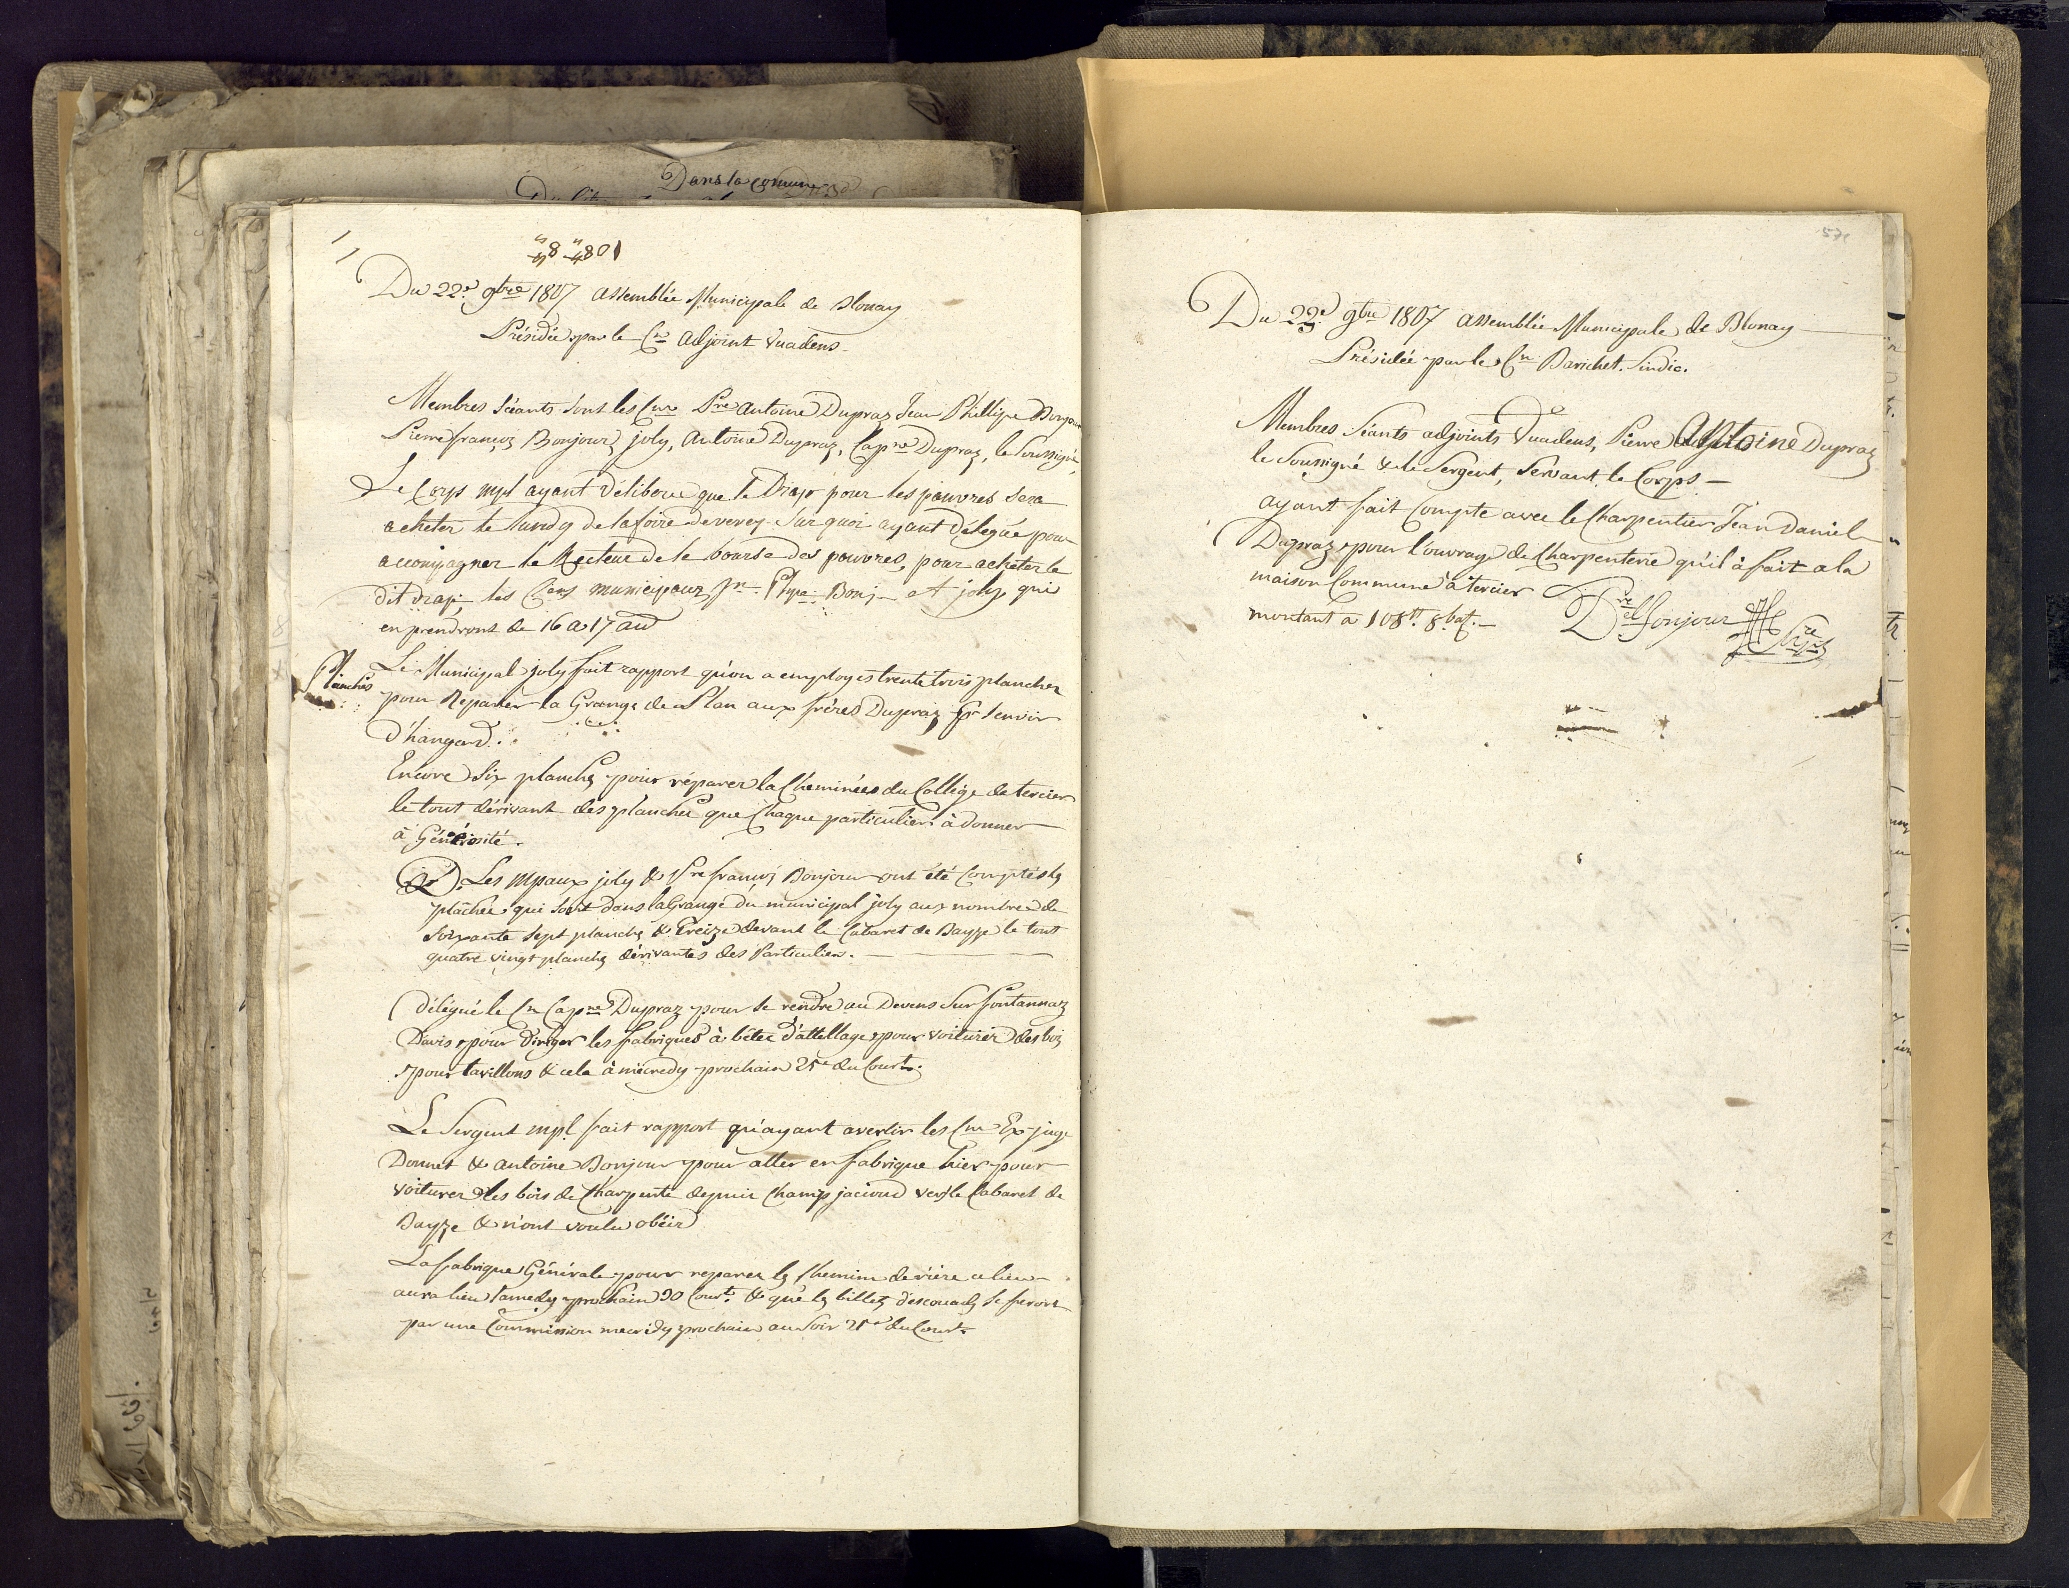 Dans la comune
Du 22.e 9bre 1807 assemblée Municipale de Blonay
Présidée par le Cn adjoint Vuadens
Membres Séants sont les Cns Pre antoine Dupraz Jean Phillipe Bonjour
Pierre françoz Bonjour, joly, Antoine Dupraz, Capne Dupraz, le Soussigné,
Le Corps mpl ayant délibere que le Drap pour les pauvres sera
acheter le lundy de la foire de vevey. Sur quoi ayant délegué pour
accompagner le Recteur de le bourse des pauvres, pour acheter le
dit drap, les Ciens municipaux Jn Phpe Bonj. et joly, qui
en prendront de 16 a 17 au
Planches
Le Municipal joly fait rapport qu'on a employes trente trois planches
pour Reparer la Grange de Plan aux frères Dupraz pr servir
d'hangard.
Encore Six planches pour réparer la Cheminées du Collége de tercier
le tout dérivant des planches que Chaque particulier à donner
à Générosité.
Les mpaux joly & Pre françoi Bonjour ont été Comptés les
plâches qui sont dans la Grange du municipal joly aux nombre de
soixante sept planches & Treize devant le Cabaret de Bayze le tout
quatre vingt planches dérivantes des Particuliers.
Délégué le Cn Capne Dupraz pour se rendre au Devens Sur fontannaz
Davis pour diriger les fabriques à bêtes d'attellage pour voiturer des bois
pour tavillons & cela à mécredy prochain 25e du Court.
Le Sergent mpl. fait rapport qu'ayant avertir les Cns Ex-juge
Donnet & antoine Bonjour pour aller en fabrique hier pour
voiturer les bois de Charpente depuis Champ jaccoud vers le Cabaret de
Bayze & n'ont voulu obéir
La fabrique Générale pour reparer les Chemins derière
aura lieu samedy prochain Court. & que les billets d'escouades se feront
par une Commission mecredy prochain au Soir 25e du Court.
Du 22.e 9bre 1807 assemblée Municipale de Blonay
Présidée par le Cn Barichet. Sindic.
Membres Séants adjoints Vuadens, Pierre Antoine Dupraz
le Soussigné & le Sergent, Servant le Corps —
ayant fait Compte avec le Charpentier Jean Daniel
Dupraz pour l'ouvrage de Charpenterie qu'il à fait a la
maison Commune à tercier
montant a 108 8 bat. —
Bonjour